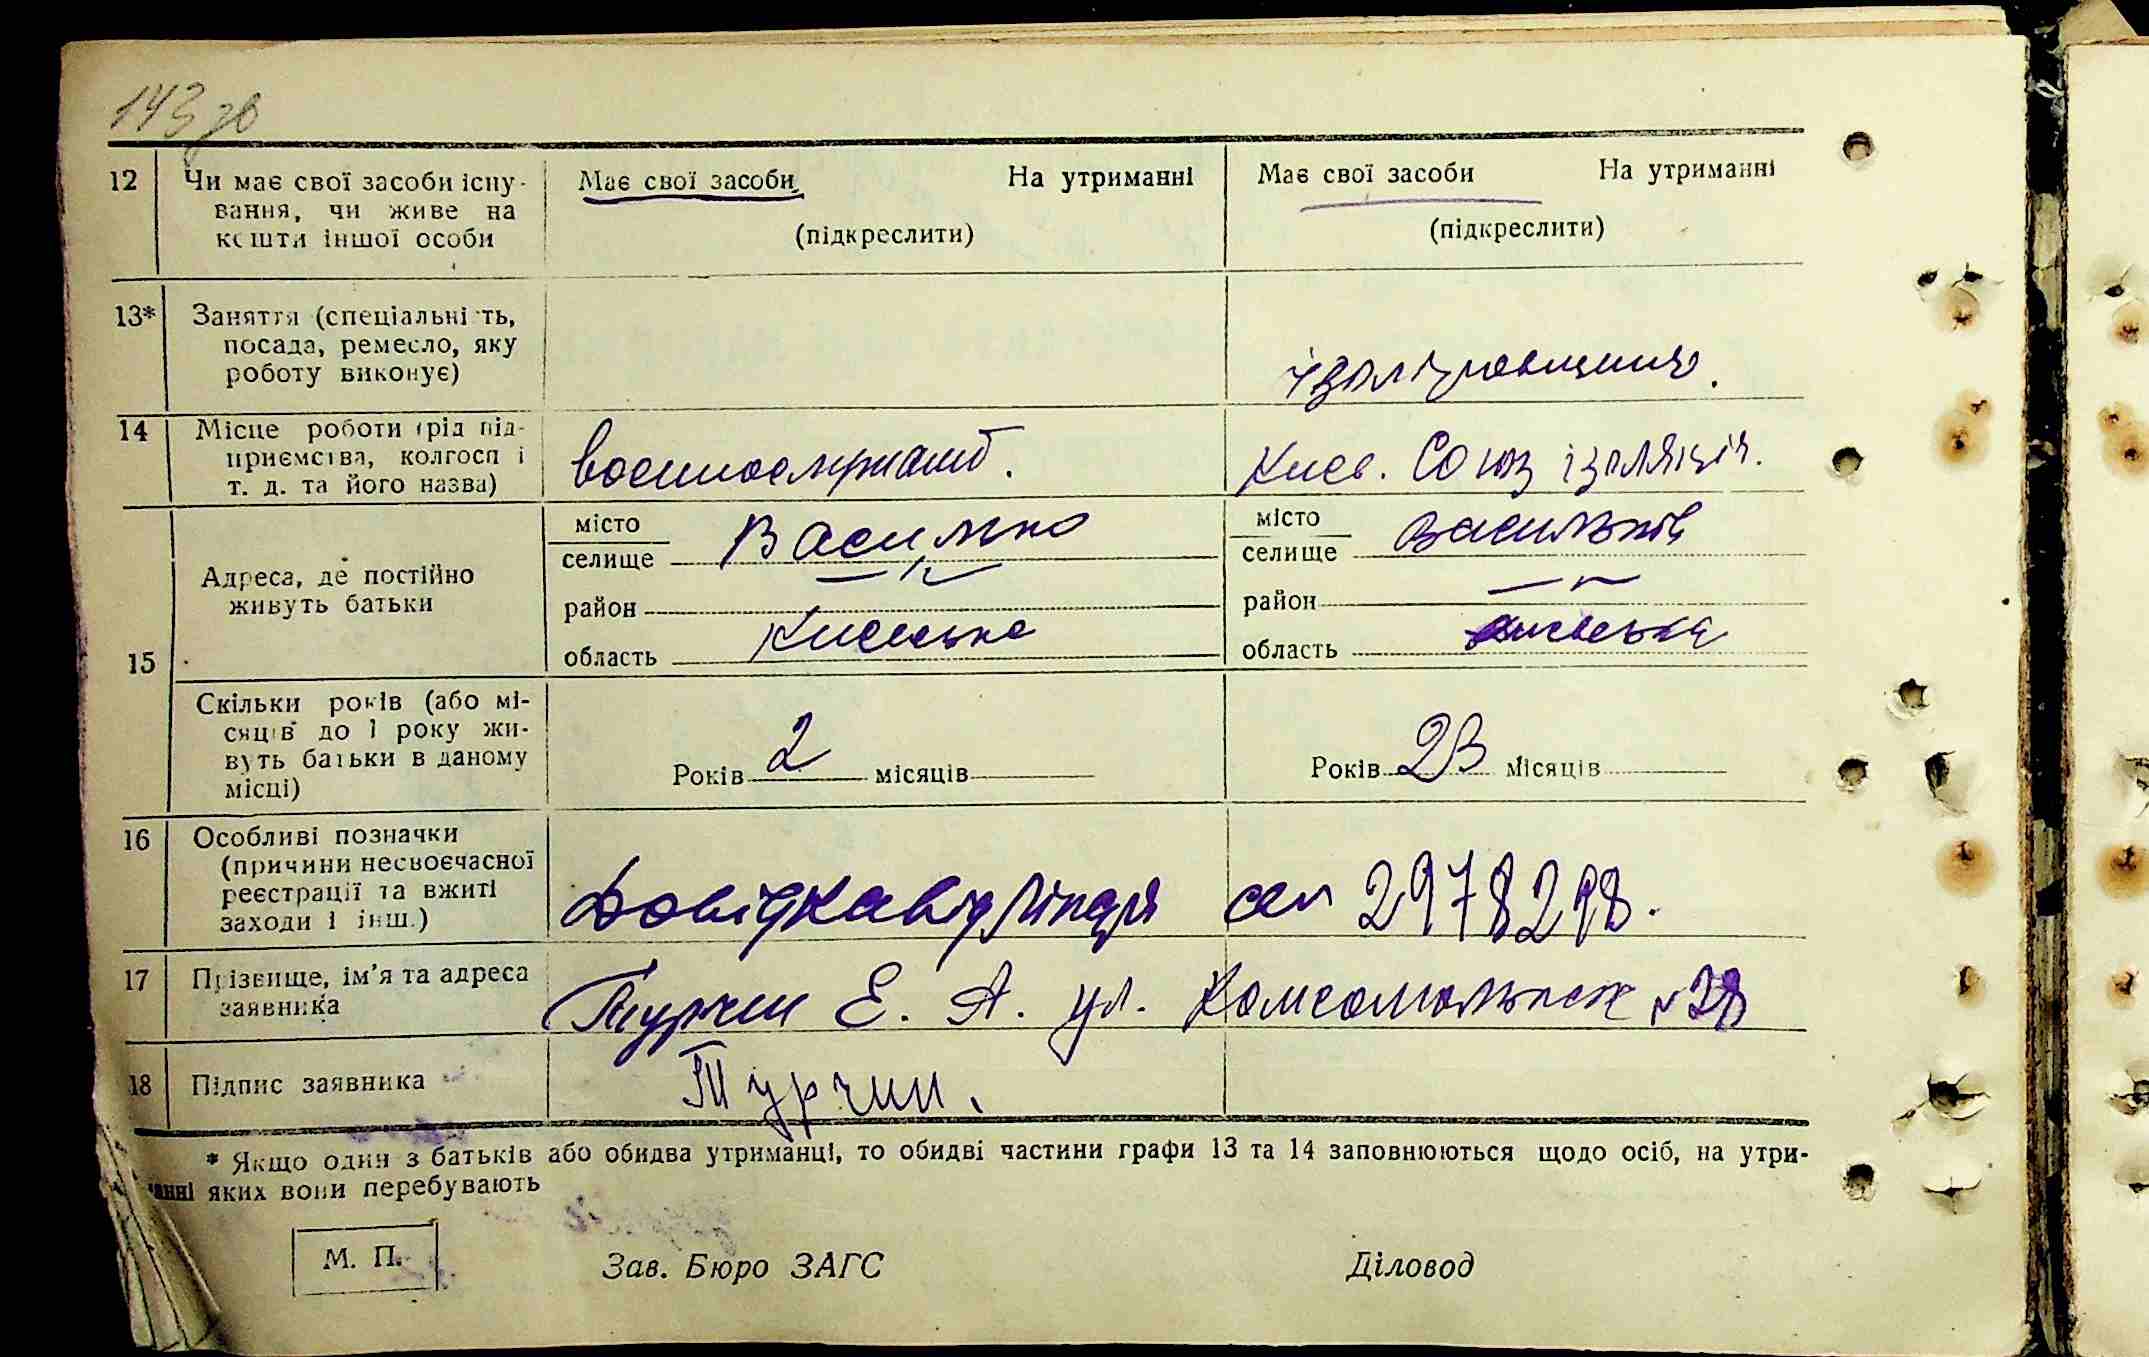 143 зв
12 Чи має свої засоби існу- Має свої засоби На утриманні Має свої засоби На утриманні
вання, чи живе на
кошти іншої особи (підкреслити) (підкреслити)
13* Заняття (спеціальність,
посада, ремесло, яку
роботу виконує)
14 Місце роботи (рід під-
приємства, колгосп і Києв. Союз ізоляція.
т. д. та його назва)
місто місто Васильків
селище селище
Адреса, де постійно
живуть батьки район район
15 область Київська область Київська
Скільки років (або мі-
сяців до 1 року жи-
вуть батьки в даному Років 2 місяців Років 23 місяців
місці)
16 Особливі позначки
(причини несвоєчасної
реєстрації та вжиті Довідка від
заходи і інш.)
17 Прізвище, ім'я та адреса
заявника Турчин Е. А. ул. Комсомольск
18 Підпис заявника Турчин.
* Якщо один з батьків або обидва утриманці, то обидві частини графи 13 та 14 заповнюються щодо осіб, на утри-
манні яких вони перебувають
М. П. Зав. Бюро ЗАГС Діловод